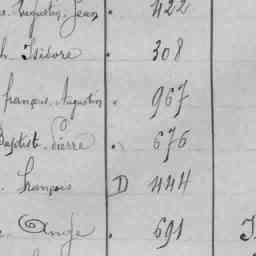 Augustin Jean 422
Isidore 308
françois Augustin 967
Baptiste Pierre 676
françois D 444
Ange 691